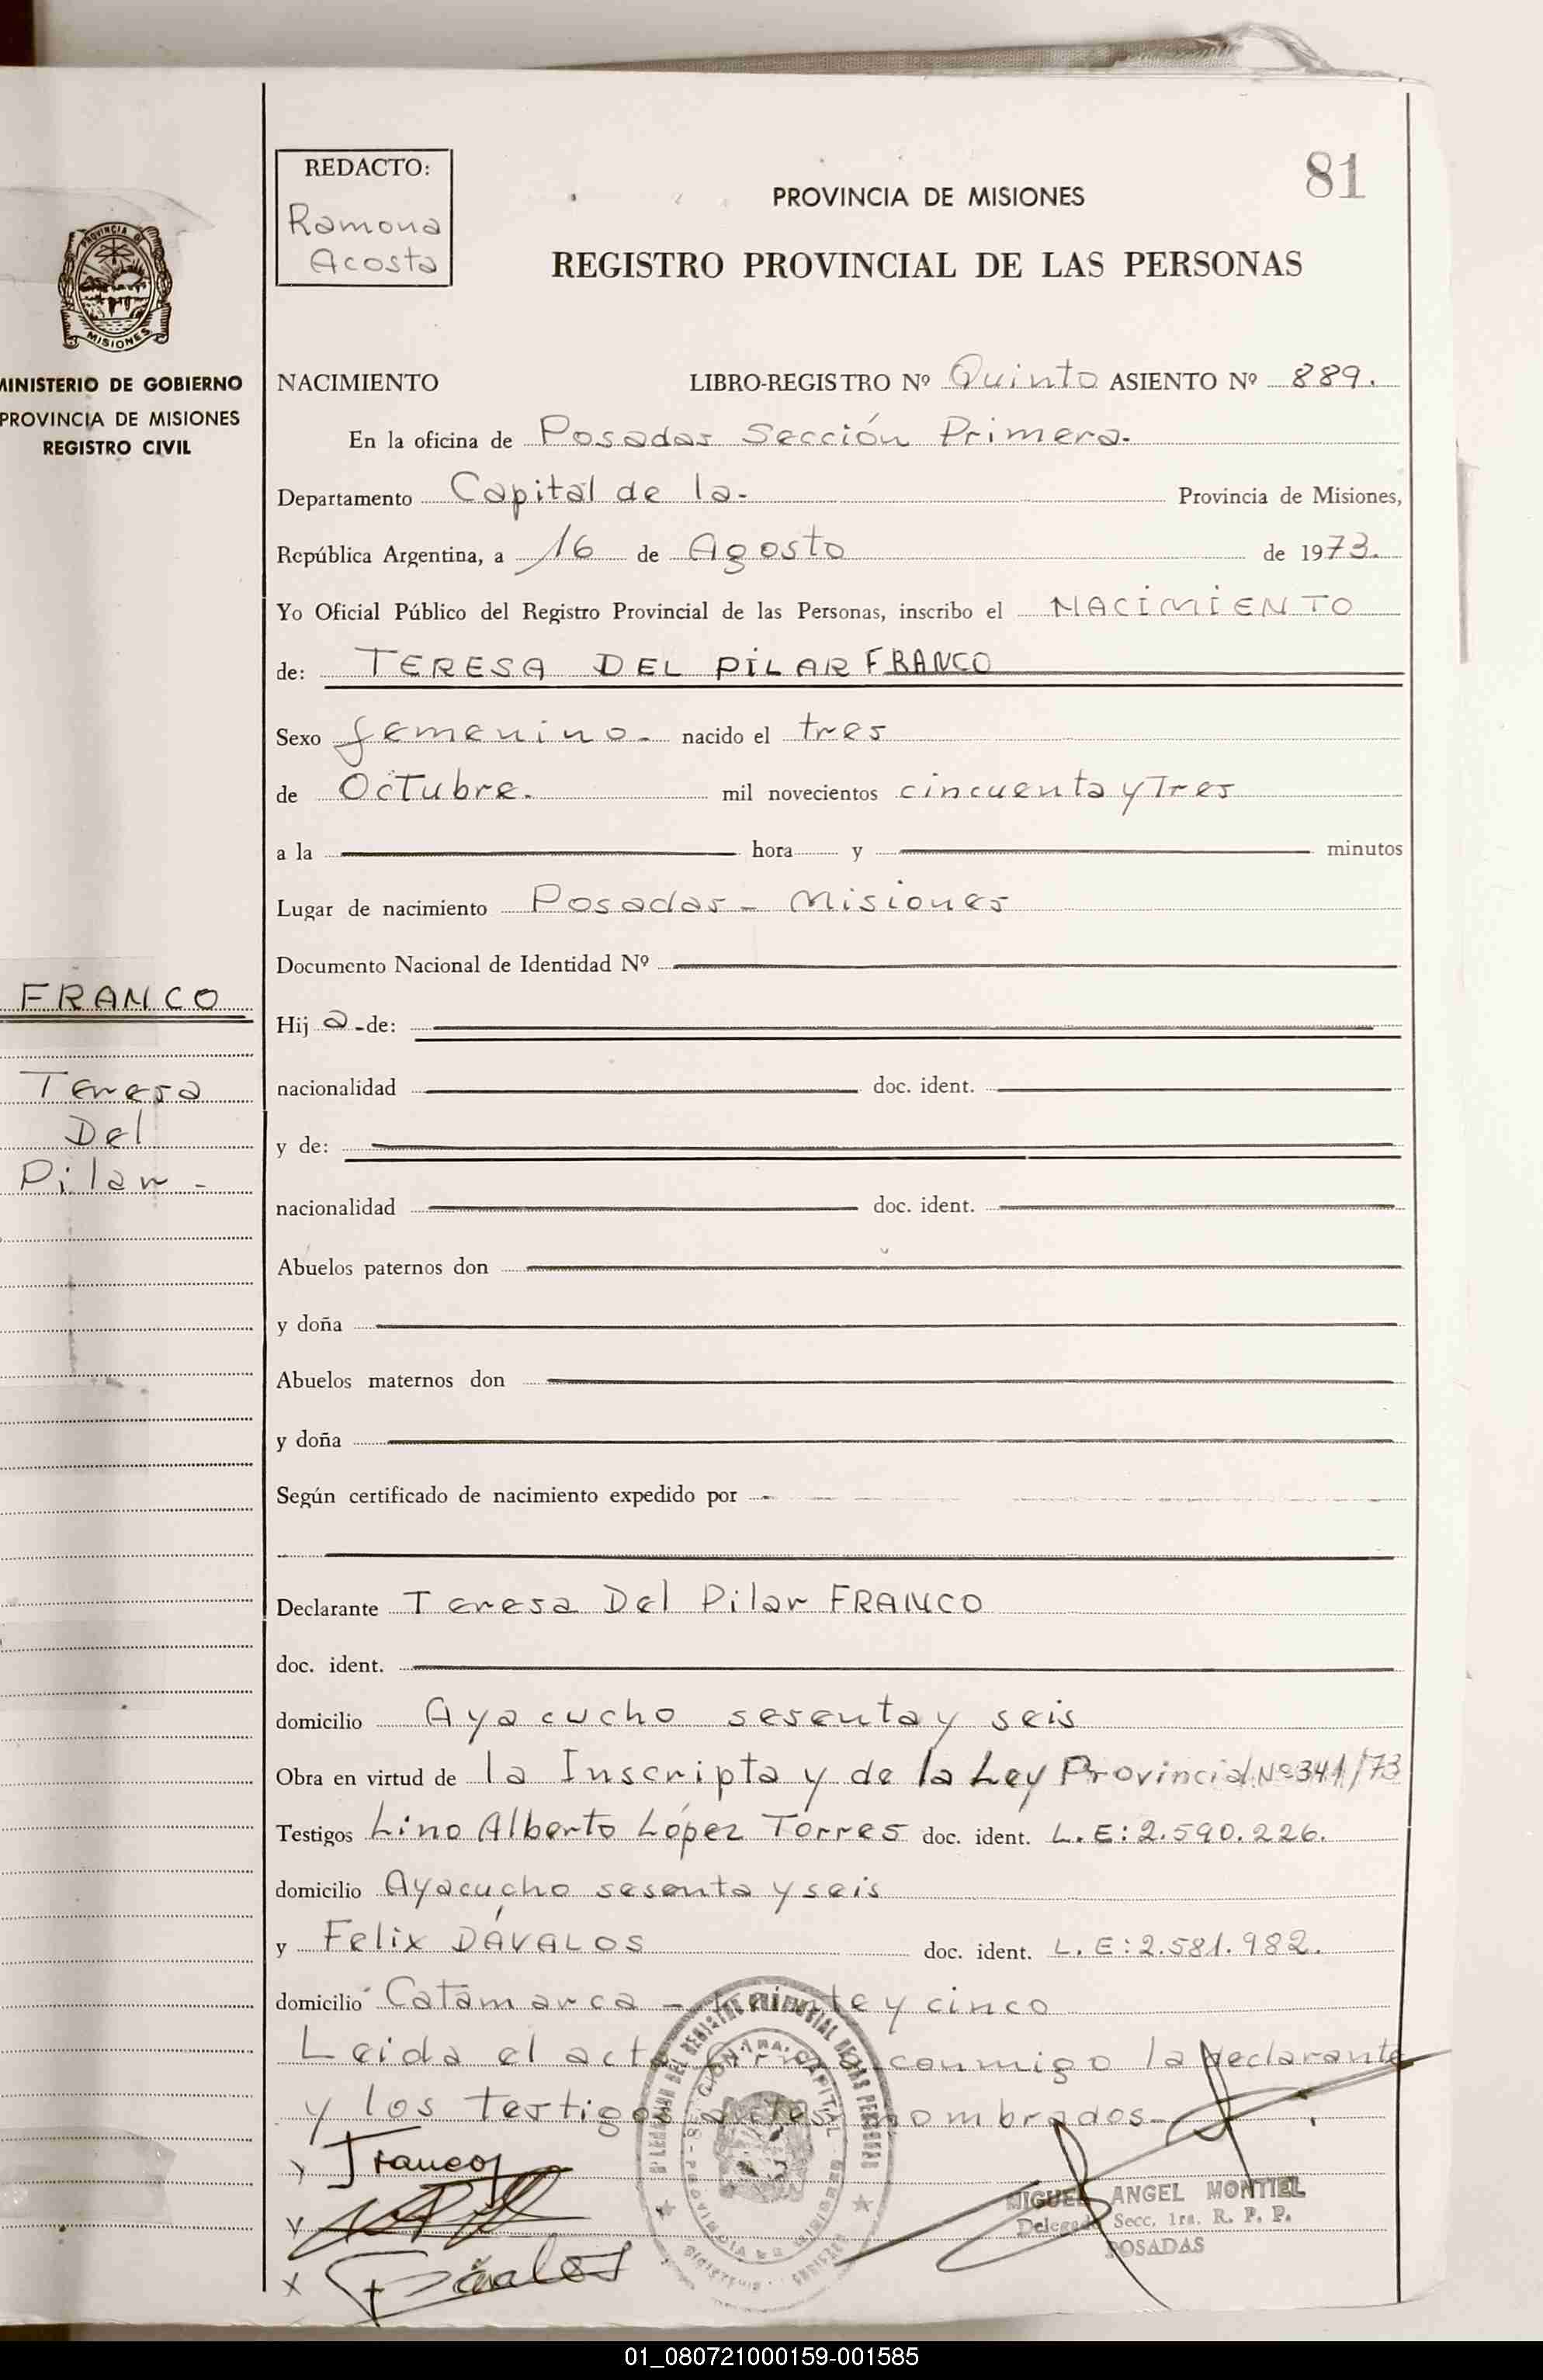 81
REDACTO:
Ramona
Acosta
PROVINCIA DE MISIONES
REGISTRO PROVINCIAL DE LAS PERSONAS
PROVINCIA DE
MISIONES
MINISTERIO DE GOBIERNO
PROVINCIA DE MISIONES
REGISTRO CIVIL
FRANCO
Teresa
Del
Pilar -
NACIMIENTO LIBRO-REGISTRO Nº Quinto ASIENTO Nº 889.
En la oficina de Posadas Sección Primera.
Departamento Capital de la. Provincia de Misiones,
República Argentina, a 16 de Agosto de 1973.
Yo Oficial Público del Registro Provincial de las Personas, inscribo el NACIMIENTO
de: TERESA DEL PILAR FRANCO
Sexo femenino. nacido el tres
de Octubre. mil novecientos cincuenta y Tres
a la hora y minutos
Lugar de nacimiento Posadas - Misiones
Documento Nacional de Identidad Nº
Hij a - de:
nacionalidad doc. ident.
y de:
nacionalidad doc. ident.
Abuelos paternos don
y doña
Abuelos maternos don
y doña
Según certificado de nacimiento expedido por
Declarante Teresa Del Pilar FRANCO
doc. ident.
domicilio Ayacucho sesenta y seis
Obra en virtud de la Inscripta y de la Ley Provincial Nº 341/73
Testigos Lino Alberto López Torres doc. ident. L.E: 2.590.226.
domicilio Ayacucho sesenta y seis
y Felix DÁVALOS doc. ident. L.E: 2.581.982.
domicilio Catamarca - treinta y cinco
Leida el acta firman conmigo la declarante
y los testigos antes nombrados-
Franco
Dávalos
MIGUEL ANGEL MONTIEL
Delegado Secc. 1ra. R. P. P.
POSADAS
01_080721000159-001585